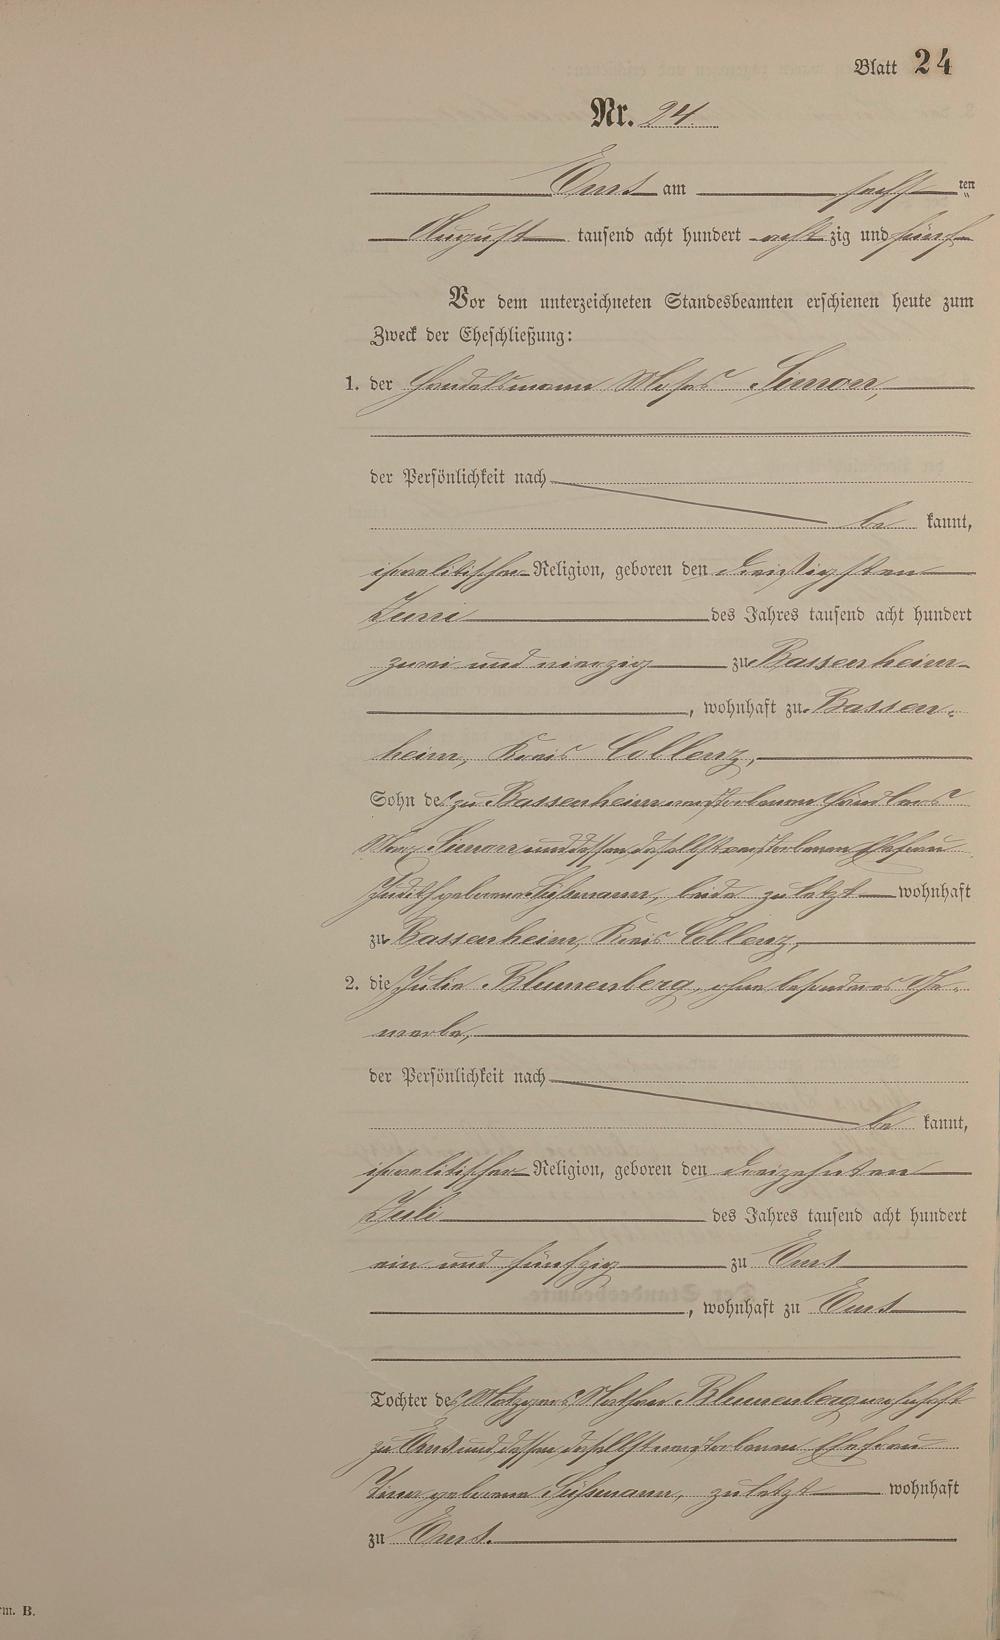 Blatt 24
Nr. 24.
Ems am sechsten
August tausend acht hundert achtzig und fünf
Vor dem unterzeichneten Standesbeamten erschienen heute zum
Zweck der Eheschließung:
1. der Handelsmann Moses Simon,
der Persönlichkeit nach
be kannt,
israelitischer Religion, geboren den dreißigsten
Juni des Jahres tausend acht hundert
zwei und vierzig zu Bassenheim
, wohnhaft zu Bassen-
heim, Kreis Coblenz,
Sohn des zu Bassenheim verstorbenen Händlers
Marx Simon und dessen daselbst verstorbenen Ehefrau
Judith geborene Süßmann, beide zuletzt wohnhaft
zu Bassenheim, Kreis Coblenz,
2. die Julie Blumenberg, ohne besonderes Ge-
werbe,
der Persönlichkeit nach
be kannt,
israelitischer Religion, geboren den dreizehnten
Juli des Jahres tausend acht hundert
ein und fünfzig zu Ems
, wohnhaft zu Ems
Tochter des Metzgers Nathan Blumenberg wohnhaft
zu Ems und dessen daselbst verstorbenen Ehefrau
geborene Süßmann, zuletzt wohnhaft
zu Ems.
rm. B.